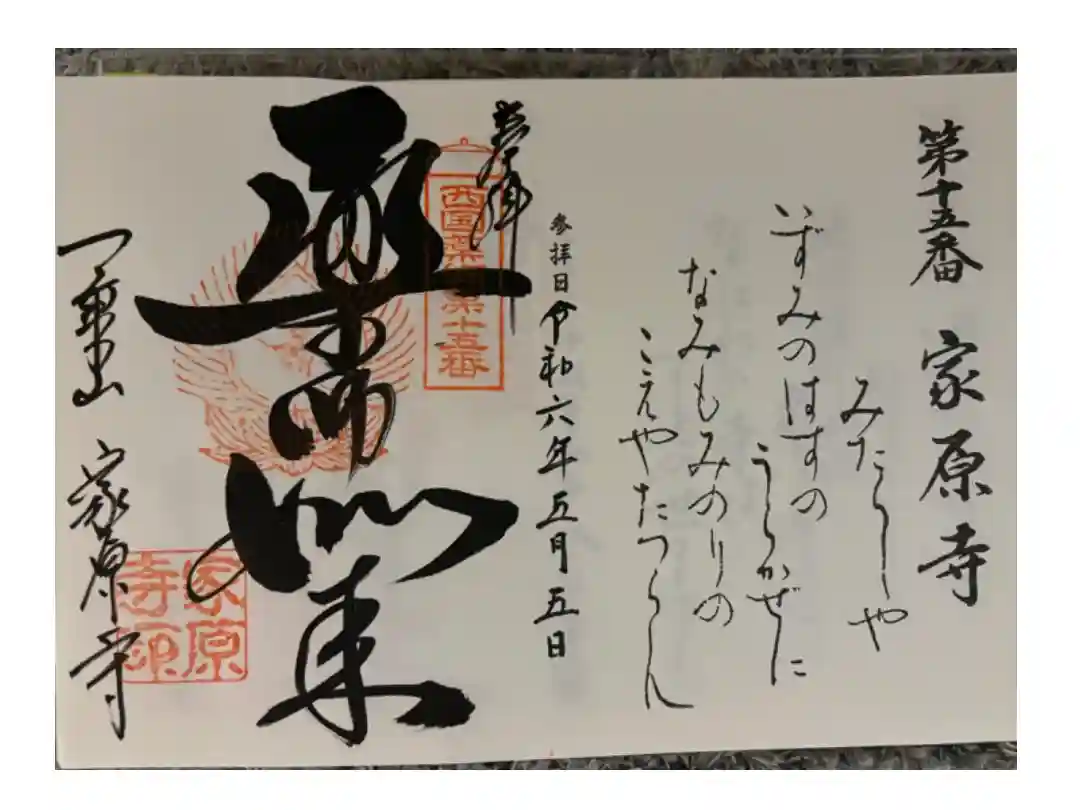 第十五番 家原寺
みたらしや
いずみのはすの
うらかぜに
なみもみのりの
こえやたつらん
参拝日 令和六年五月五日
奉拝
西国薬師第十五番
薬師如来
一乗山 家原寺
家原寺印